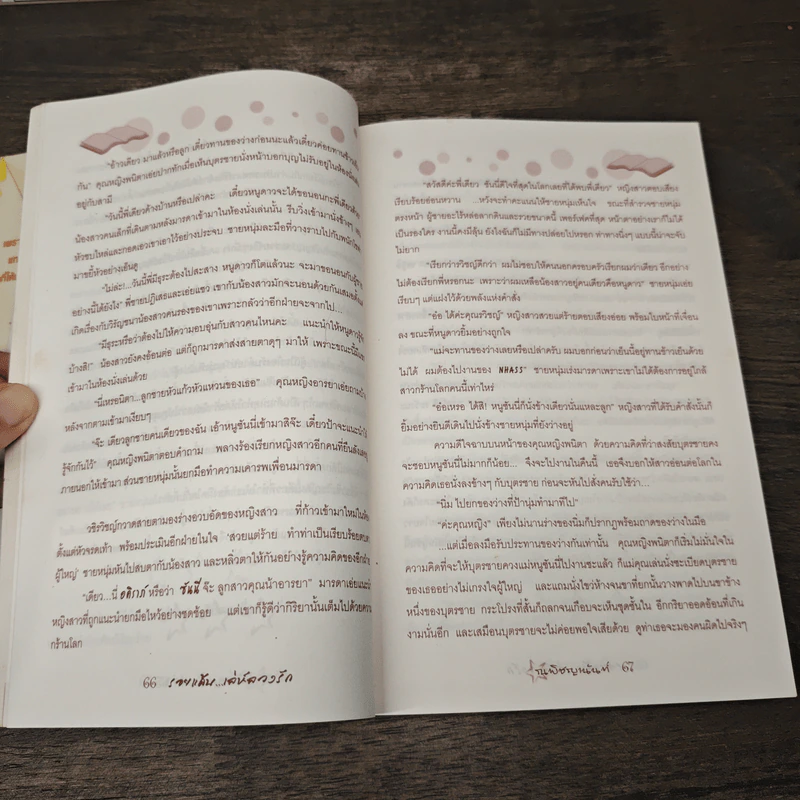 "อ้าวเดียว มาแล้วหรือลูก เดี๋ยวทานของว่างก่อนนะแล้วเดี๋ยวค่อยทานข้าวเย็น
กัน" คุณหญิงพนิตาเอ่ยปากทักเมื่อเห็นบุตรชายนั่งหน้าบอกบุญไม่รับอยู่ในห้องนั่งเล่น
อยู่กับสามี
"วันนี้พี่เดียวค้างบ้านหรือเปล่าคะ เดี๋ยวหนูดาวจะได้ขอนอนกะพี่เดียวด้วย
น้องสาวคนเล็กที่เดินตามหลังมารดาเข้ามาในห้องนั่งเล่นนั้น รีบวิ่งเข้ามานั่งข้างๆ
หัวซบไหล่และกอดเอวเขาเอาไว้อย่างประจบ ชายหนุ่มละมือที่วางราบไปกับพนักโซฟา
มาขยี้หัวอย่างเอ็นดู
"ไม่ล่ะ!...วันนี้พี่มีธุระต้องไปสะสาง หนูดาวก็โตแล้วนะ จะมาขอนอนกับผู้ชาย
อย่างนี้ได้ยังไง" พี่ชายปฏิเสธและเอ่ยแซว เขากับน้องสาวมักจะนอนด้วยกันเสมอตั้งแต่
เกิดเรื่องกับวิรัญชนาน้องสาวคนรองของเขาเพราะกลัวว่าอีกฝ่ายจะจากไป...
"มีธุระหรือว่าต้องไปให้ความอบอุ่นกับสาวคนไหนคะ แนะนำให้หนูดาวรู้จัก
บ้างสิ!" น้องสาวยังคงอ้อนต่อ แต่ก็ถูกมารดาส่งสายตาดุๆ มาให้ เพราะขณะนี้มี
เข้ามาในห้องนั่งเล่นด้วย
"นี่เหรอนิตา...ลูกชายหัวแก้วหัวแหวนของเธอ" คุณหญิงอารยาเอ่ยถามบ้าง
หลังจากตามเข้ามาเงียบๆ
"จ๊ะ เดียวลูกชายคนเดียวของฉัน เอ้าหนูซันนี่เข้ามาสิจ๊ะ เดี๋ยวป้าจะแนะนำให้
รู้จักกันไว้" คุณหญิงพนิตาตอบคำถาม พลางร้องเรียกหญิงสาวอีกคนที่ยืนลังเลอยู่
ภายนอกให้เข้ามา ส่วนชายหนุ่มนั้นยกมือทำความเคารพเพื่อนมารดา
วชิรวิชญ์กวาดสายตามองร่างอวบอัดของหญิงสาว ที่ก้าวเข้ามาใหม่ในห้อง
ตั้งแต่หัวจรดเท้า พร้อมประเมินอีกฝ่ายในใจ 'สวยแต่ร้าย ทำท่าเป็นเรียบร้อยต่อหน้า
ผู้ใหญ่' ชายหนุ่มหันไปสบตากับน้องสาว และหลิ่วตาให้กันอย่างรู้ความคิดของอีกฝ่าย
"เดียว...นี่ อติกภ์ หรือว่า ซันนี่ จ๊ะ ลูกสาวคุณน้าอารยา" มารดาเอ่ยแนะนำ
หญิงสาวที่ถูกแนะนำยกมือไหว้อย่างชดช้อย แต่เขาก็รู้ดีว่ากิริยานั้นเต็มไปด้วยความ
กร้านโลก
66 รอยแค้น...เล่ห์ลวงรัก
"สวัสดีค่ะพี่เดียว ซันนี่ดีใจที่สุดในโลกเลยที่ได้พบพี่เดียว" หญิงสาวตอบเสียง
เรียบร้อยอ่อนหวาน ...หวังจะทำคะแนนให้ชายหนุ่มเห็นใจ ขณะที่สำรวจชายหนุ่ม
ตรงหน้า ผู้ชายอะไรหล่อลากดินและรวยขนาดนี้ เพอร์เฟคที่สุด หน้าตาอย่างเราก็ไม่ได้
เป็นรองใคร งานนี้คงมีลุ้น ยังไงฉันก็ไม่มีทางปล่อยไปหรอก ท่าทางนิ่งๆ แบบนี้น่าจะจับ
ไม่ยาก
"เรียกว่ารวิชญ์ดีกว่า ผมไม่ชอบให้คนนอกครอบครัวเรียกผมว่าเดียว อีกอย่าง
ไม่ต้องเรียกพี่หรอกนะ เพราะว่าผมเหลือน้องสาวอยู่คนเดียวคือหนูดาว" ชายหนุ่มเอ่ย
เรียบๆ แต่แฝงไว้ด้วยพลังแห่งคำสั่ง
"อ๋อ ได้ค่ะคุณรวิชญ์" หญิงสาวสวยแต่ร้ายตอบเสียงอ่อย พร้อมใบหน้าที่เจื่อน
ลง ขณะที่หนูดาวยิ้มอย่างถูกใจ
"แม่จะทานของว่างเลยหรือเปล่าครับ ผมบอกก่อนว่าเย็นนี้อยู่ทานข้าวเย็นด้วย
ไม่ได้ ผมต้องไปงานของ NHASS" ชายหนุ่มเร่งมารดาเพราะเขาไม่ได้ต้องการอยู่ใกล้
สาวกร้านโลกคนนี้เท่าไหร่
"อ๋อเหรอ ได้สิ! หนูซันนี่ก็นั่งข้างเดียวนั่นแหละลูก" หญิงสาวที่ได้รับคำสั่งนั้นก็
ยิ้มอย่างยินดีเดินไปนั่งข้างชายหนุ่มที่ยังว่างอยู่
ความดีใจฉาบบนหน้าของคุณหญิงพนิตา ด้วยความคิดที่ว่าสงสัยบุตรชายคง
จะชอบหนูซันนี่ไม่มากก็น้อย... จึงจะไปงานในคืนนี้ เธอจึงบอกให้สาวอ่อนต่อโลกใน
ความคิดเธอนั่งลงข้างๆ กับบุตรชาย ก่อนจะหันไปสั่งคนรับใช้ว่า...
"นิ่ม ไปยกของว่างที่ป้านุ่มทำมาทีไป"
"ค่ะคุณหญิง" เพียงไม่นานร่างของนิ่มก็ปรากฏพร้อมถาดของว่างในมือ
...แต่เมื่อลงมือรับประทานของว่างกันเท่านั้น คุณหญิงพนิตาก็เริ่มไม่มั่นใจใน
ความคิดที่จะให้บุตรชายควงแม่หนูซันนี่ไปงานซะแล้ว ก็แม่คุณเล่นนั่งซะเบียดบุตรชาย
ของเธออย่างไม่เกรงใจผู้ใหญ่ และแถมนั่งไขว่ห้างจนขาที่ยกนั้นวางพาดไปบนขาข้าง
หนึ่งของบุตรชาย กระโปรงที่สั้นก็ถลกจนเกือบจะเห็นชุดชั้นใน อีกกริยาออดอ้อนที่เกิน
งามนั่นอีก และเสมือนบุตรชายจะไม่ค่อยพอใจเสียด้วย ดูท่าเธอจะมองคนผิดไปจริงๆ
67